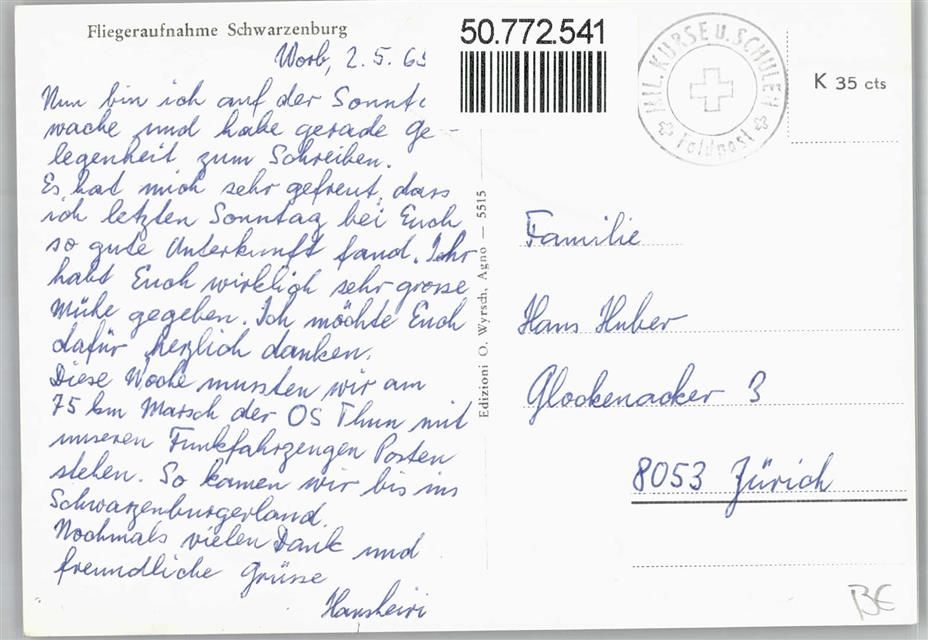 Fliegeraufnahme Schwarzenburg
Worb, 2. 5. 65
Nun bin ich auf der Sonnt
wache und habe gerade Ge-
legenheit zum Schreiben.
Es hat mich sehr gefreut, dass
ich letzten Sonntag bei Euch
so gute Unterkunft fand. Ihr
habt Euch wirklich sehr grosse
Mühe gegeben. Ich möchte Euch
dafür herzlich danken.
Diese Woche mussten wir am
75 km Marsch der OS Thun mit
unseren Funkfahrzeugen Posten
stehen. So kamen wir bis ins
Schwarzenburgerland.
Nochmals vielen Dank und
freundliche Grüsse
Hansheiri
Edizioni O. Wyrsch, Agno — 5515
50.772.541
MIL. KURSE U. SCHULEN
Feldpost
K 35 cts
Familie
Hans Huber
Glockenacker 3
8053 Zürich
BE